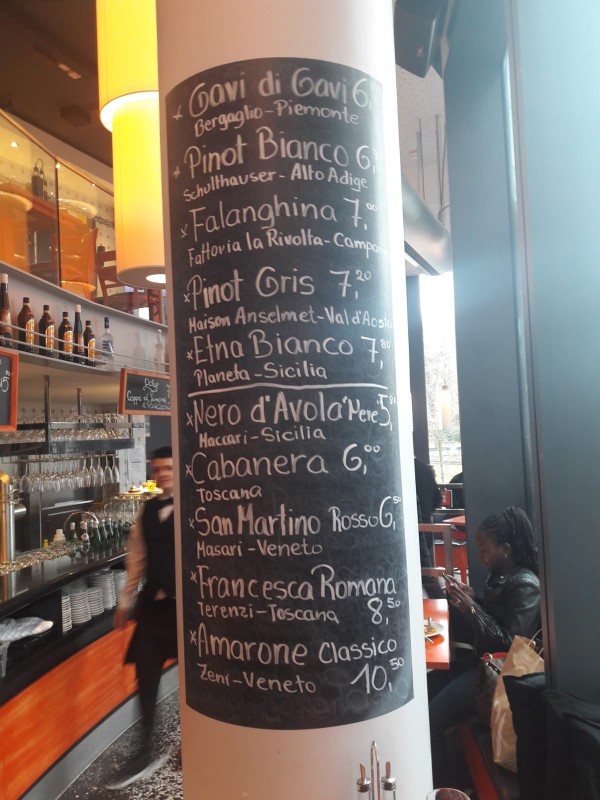 x Gavi di Gavi 6,
Bergaglio-Piemonte
x Pinot Bianco 6,
Schulthauser-Alto Adige
x Falanghina 7,00
Fattoria la Rivolta-Campan
x Pinot Gris 7,20
Maison Anselmet-Val d'Aosta
x Etna Bianco 7,80
Planeta-Sicilia
x Nero d'Avola 5,
Maccari-Sicilia
x Cabanera 6,00
Toscana
x San Martino Rosso 6,50
Masari-Veneto
x Francesca Romana
Terenzi-Toscana 8,50
x Amarone Classico
Zeni-Veneto 10,50